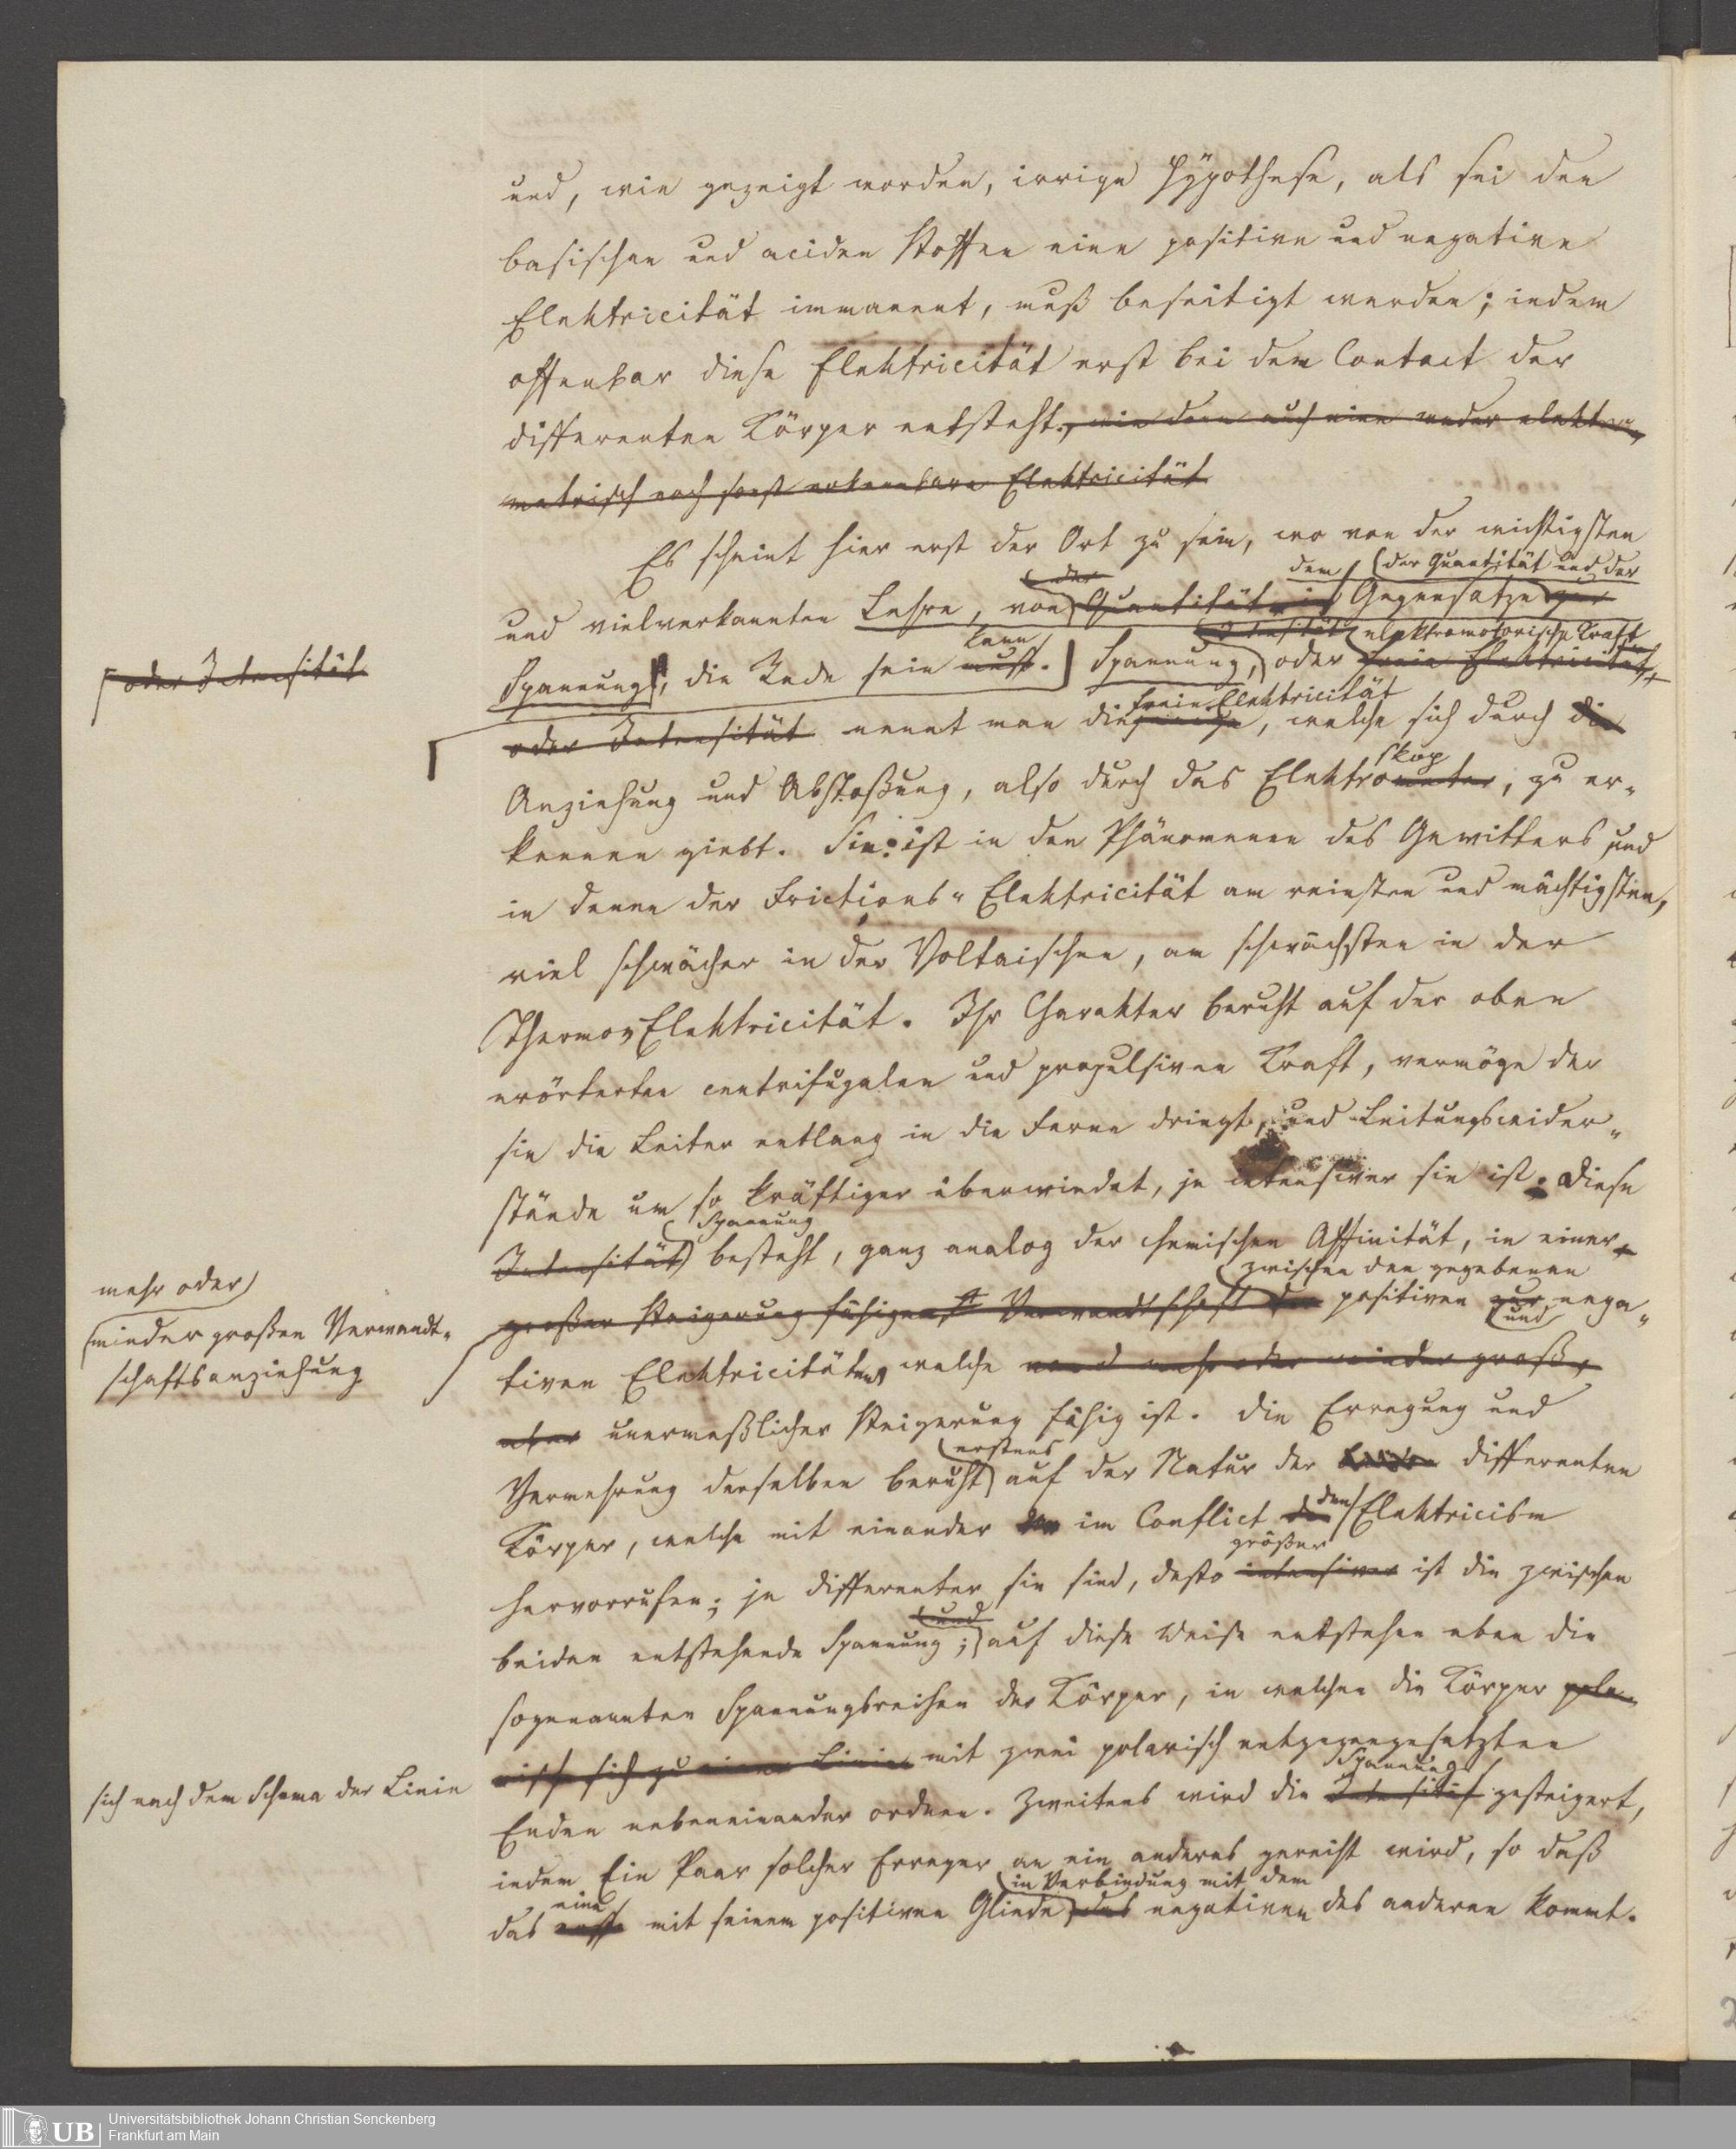 und, wie gezeigt worden, irrige Hÿpothese, als sei den
basischen und aciden Stoffen eine positive und negative
Elektricität immanent, muß beseitigt werden; indem
offenbar diese Elektricität erst bei dem Contact der
differenten Körper entsteht, wie denn auch eine weder elektro-
metrisch noch sonst erkennbare Elektricität
Es scheint hier erst der Ort zu sein, wo von der wichtigsten
dem der Quantität und der
und vielverkannten Lehre, von der Quantität in Gegensatze zur
oder Intensität
kann
Intensität elektromotorische Kraft
Spannung, die Rede sein muß. Spannung, oder freie Elektricität,
freie Elektricität
oder Intensität nennt man diejenige, welche sich durch die
skop
Anziehung und Abstoßung, also durch das Elektrometer, zu er-
kennen giebt. Sie ist in den Phänomenen des Gewitters und
in denen der Frictions-Elektricität am reinsten und mächtigsten,
viel schwächer in der Voltaischen, am schwächsten in der
Thermo-Elektricität. Ihr Charakter beruht auf der oben
erörterten centrifugalen und propulsiven Kraft, vermöge der
sie die Leiter entlang in die Ferne dringt, und Leitungswider-
stände um so kräftiger überwindet, je intensiver sie ist. Diese
Spannung
Intensität besteht, ganz analog der chemischen Affinität, in einer
mehr oder
minder großen Verwandt-
schaftsanziehung
zwischen den gegebenen
großer Steigerung fähigen Verwandtschaft der positiven zur nega-
und
tiven Elektricitäten, welche und mehr oder minder groß,
aber unermeßlicher Steigerung fähig ist. Die Erregung und
erstens
Vermehrung derselben beruht auf der Natur der differenten
den
Körper, welche mit einander im Conflict Elektricism
größer
hervorrufen; je differenter sie sind, desto intensiver ist die zwischen
und
beiden entstehende Spannung; auf diese Weise entstehen eben die
sogenannten Spannungsreihen der Körper, in welchen die Körper pola-
sich nach dem Schema der Linie
risch sich zu einer Linie mit zwei polarisch entgegengesetzten
Spannung
Enden nebeneinander ordnen. Zweitens wird die Intensität gesteigert,
indem Ein Paar solcher Erreger an ein anderes gereiht wird, so daß
eine in Verbindung mit dem
das erste mit seinem positiven Gliede das negativen des anderen kommt.
Universitätsbibliothek Johann Christian Senckenberg
UB
Frankfurt am Main